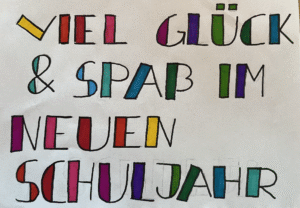 VIEL GLÜCK
& SPAß IM
NEUEN
SCHULJAHR